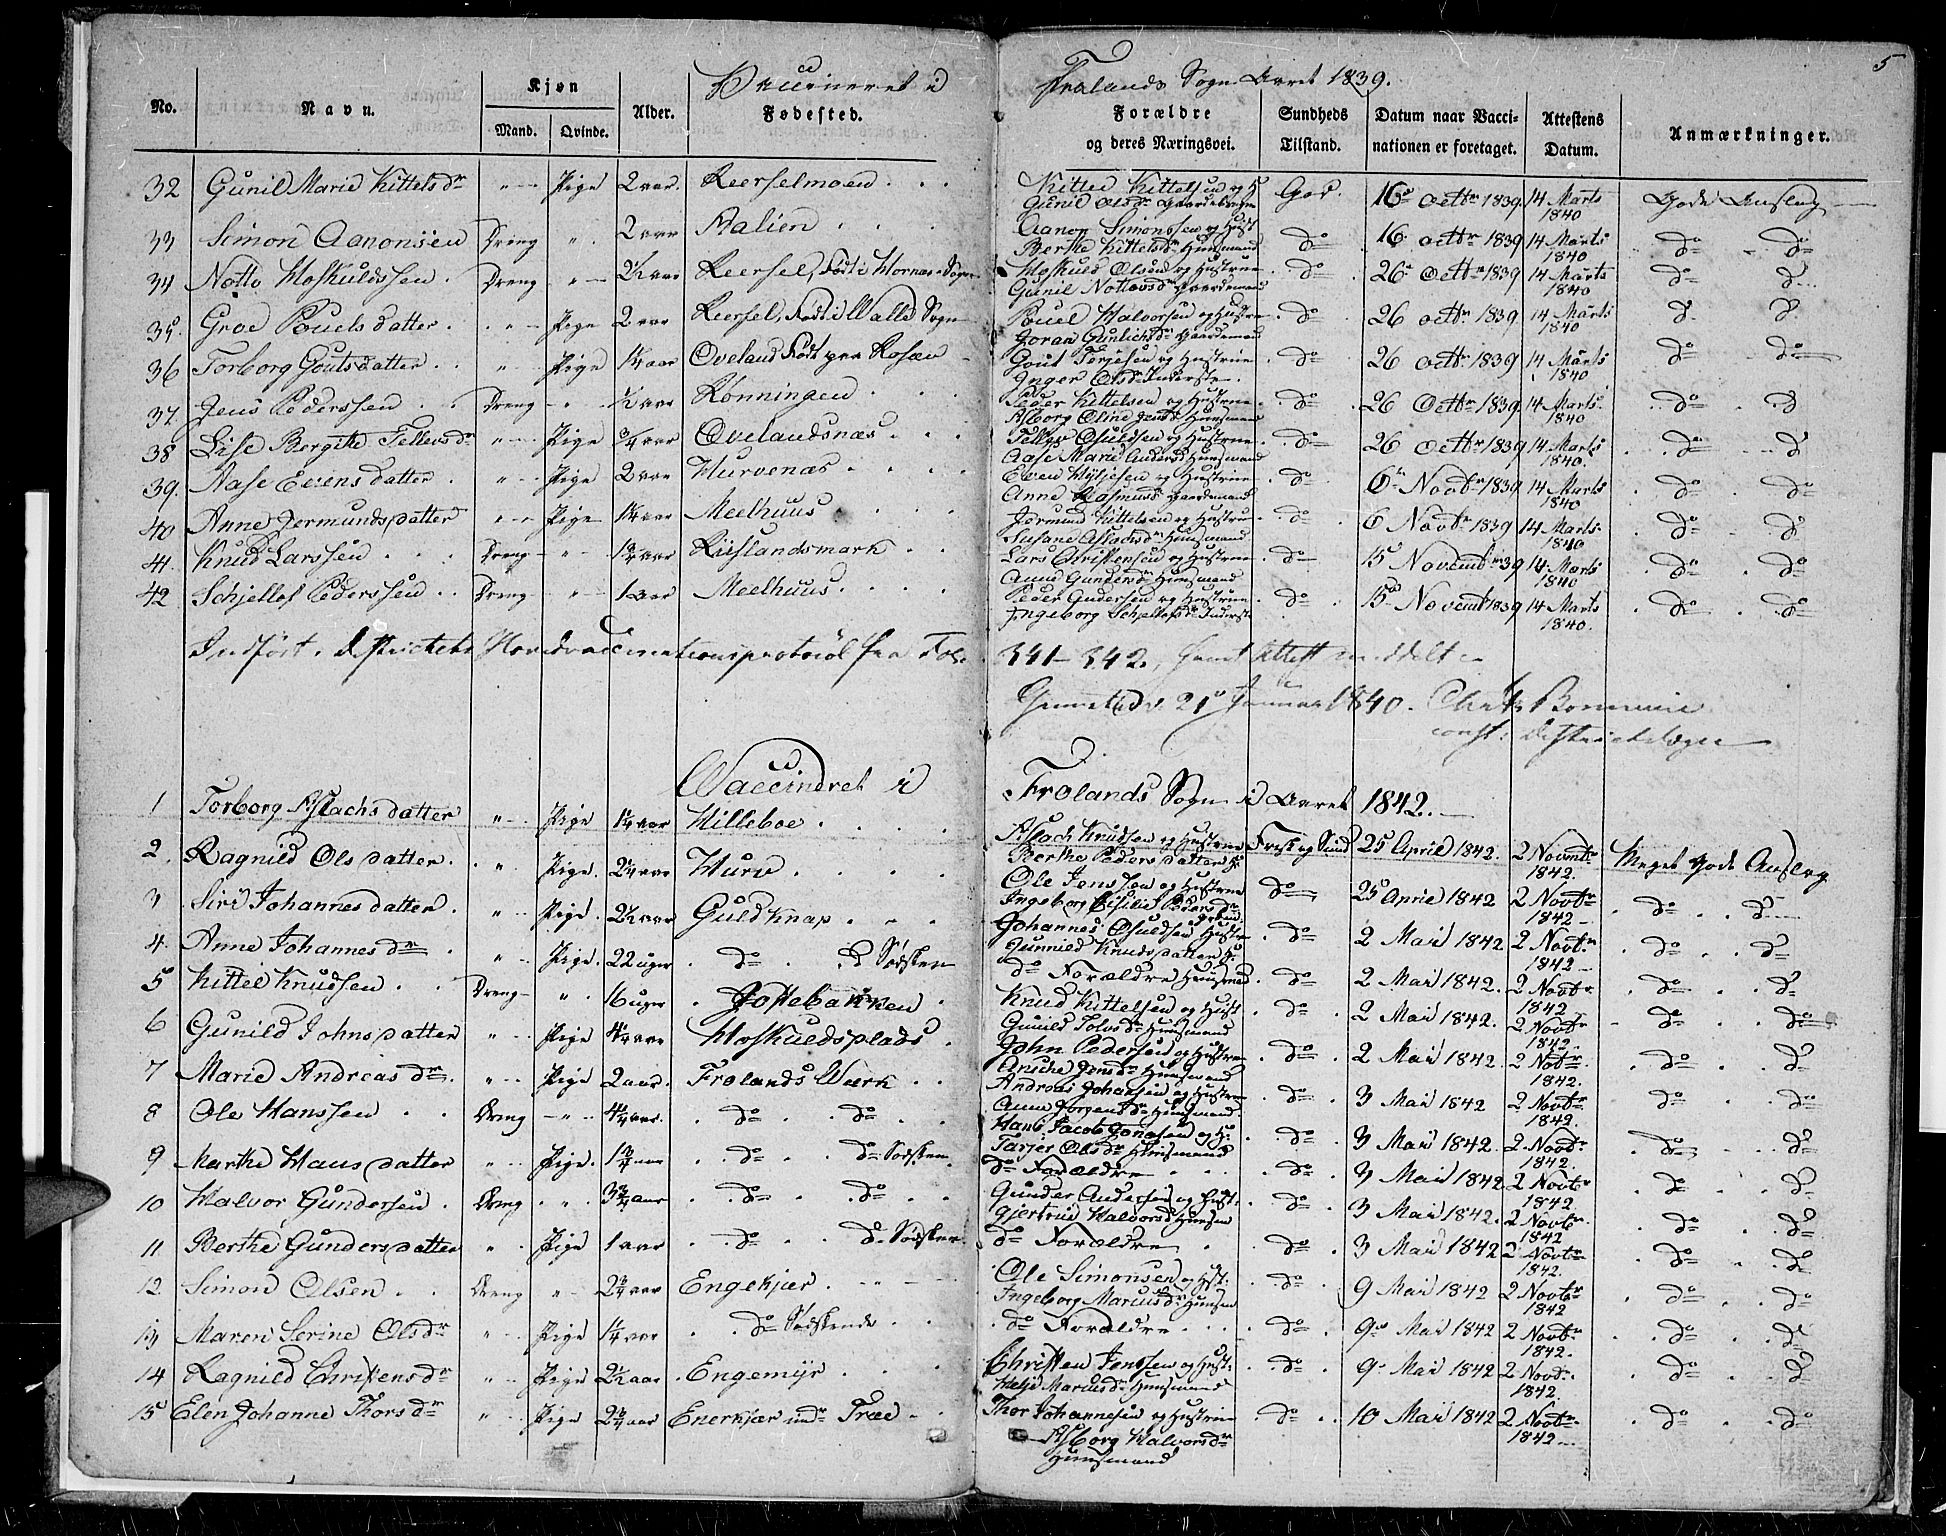 5
Vaccineret i Frolands Sogn Aaret 1839.
No. Navn. Kjøn Alder. Fødested. Forældre Sundheds Datum naar Vacci- Attestens Anmærkninger.
Mand. Qvinde. og deres Næringsvei. Tilstand. nationen er foretaget. Datum.
32 Gunil Marie Kittelsdr " Pige 2 aar. Reerselmoen Kittel Kittelsen og H God. 16de Octbr 1839. 14 Marts Gode Anslag
Gunil Olsdr Gaardebruger 1840
33 Simon Aanonsen Dreng " 2 aar Aalien Aanon Simonssen og Hust do 16 octbr 1839 14 Marts do do
Berthe Kittelsdr Huusmand 1840
34 Notto Hoskuldssen Dreng " 2½ aar Reersel, Født i Hornæs Sogn Hoskuld Olsen og Hustrue do 26 Octbr 1839 14 Marts do do
Gunil Nottovsdr Gaardemand 1840
35. Groe Pouels datter " Pige 2 aar Reersel, Født i Walle Sogn Pouel Halvorsen og Hustru do 26 octbr 1839 14 Marts do do
Joran Gunlichsdr Gaardemand 1840
36 Torborg Gouts datter " Pige 1¼ aar Oveland Født paa Rosæn Gout Terjesen og Hustrue do 26 octbr 1839 14 Marts do do
Inger Olsdr Inderste 1840
37 Jens Pederssen Dreng " ½ aar Rønningen Peder Kittelsen og Hustrue do 26 Octbr 1839. 14 Marts. do do
Asborg Oline Jensdr Huusmand 1840
38 Lise Bergithe Tellevsdr " Pige ¾ aar Ovelandsnæs Tellev Osuldsen og Hustrue do 26 octbr 1839 14 Marts do do
Aase Marie Andersd Huusmand 1840.
39. Aase Evens datter " Pige 2 aar Hurvenæs Even Gjesen og Hustrue do 6te Novbr 1839 14 Marts do do
Anne Rasmusd Gaardemand 1840
40 Anne Jermunds datter " Pige 1¼ aar Meelhuus Jermund Kittelsen og Hustru do 6 Novbr 1839 14 Marts. do do
Susane Aslachsdr Huusmand 1840
41. Knud Larssen Dreng " 1¾ aar Riislandsmark Lars Christensen og Hustrue do 15 Novembr 39 14 Marts do do
Anne Gundersdr Huusmand 1840
42 Schjellof Pederssen Dreng " 1 aar Meelhuus Peder Gundersen og Hustrue do 15de Novemb 1839 14 Marts do do
Ingeborg Schjellofsdr Inderste 1840.
Indført i Districtets Hovedvaccinationsprotocol fra Fol. 341-342, samt Attest meddelt
Grimstad d. 21 Januar 1840.
const. Districtslæge
Vaccineret i Frolands Sogn i Aaret 1842.
1 Torborg Aslachs datter " Pige 1¼ aar Hilleboe Aslach Knudsen og Hustrue Frisk og Sund 25 April 1842. 2 Novembr Meget gode Anslag
Berthe Peders datter 1842.
2. Ragnild Ols datter " Pige. 2¼ aar Hurv Ole Jenssen og Hustrue do 25 April 1842 2 Novbr do do
Ingeborg Cisilie Pedersdr 1842
3 Siri Johannes datter " Pige. 2½ aar Guldknap Johannes Osuldsen Hustru do 2 Mai 1842 2 Novbr do do
Gunnild Knudsdatter 1842
4. Anne Johannes dr " Pige. 22 uger do do Sødsken do Forældre Huusmand do 2 Mai 1842. 2 Novbr do do
1842
5 Kittel Knudsen Dreng " 16 uger Joppebakken Knud Kittelsen og Hust do 2 Mai 1842. 2 Novbr do do
Gunild Tolvsdr Huusmand 1842.
6 Gunild Johns datter " Pige 4¼ aar Hoskuldsplads John Pedersen og Hustrue do 2 Mai 1842. 2 Novbr do do
Jensdr Huusmand 1842.
7 Marie Andreas dr " Pige 2 aar. Frolands Værk Andreas Johansen og Hustrue do 3 Mai 1842 2 Novbr do do
Anne Jørgensdr Huusmand 1842.
8 Ole Hanssen Dreng " 4¼ aar. do do Hans Jacob Jonasen og H: do 3 Mai 1842. 2 Novbr do do
Tarjer Olsdr Huusmand 1842.
9 Marthe Hans datter " Pige. 1¾ aar do do Sødsken do Forældre do 3 Mai 1842 2 Novbr do do
1842
10 Halvor Gundersen Dreng " 3¾ aar do do Gunder Andersen og Hust. do 3 Mai 1842. 2 Novbr do do
Gjertrud Halvorsd Huusm 1842
11 Berthe Gunders datter " Pige 1 aar do do Sødsken do Forældre do 3 Mai 1842 2 Novbr do do
1842.
12 Simon Olsen Dreng " 2¾ aar Engekjær Ole Simonsen og Hst: do 9 Mai 1842 2 Novbr do do
Ingeborg Mariusdr Huusm 1842
13 Maren Serine Olsdr " Pige 1¼ aar do Sødskende do Forældre do 9de Mai 1842 2 Novbr do do
1842.
14 Ragnild Christensdr " Pige 2½ aar Engemyr Christen Jenssen og Hust: do 9 Mai 1842 2 Novbr do do
Helje Mariusdr Huusmand 1842.
15 Elen Johanne Thorsdr " Pige 2¾ aar Enerkjær undr Træe Thor Johannesen og Hustrue do 10 Mai 1842 2 Novbr do do
Asborg Halvorsdr 1842
Huusmand